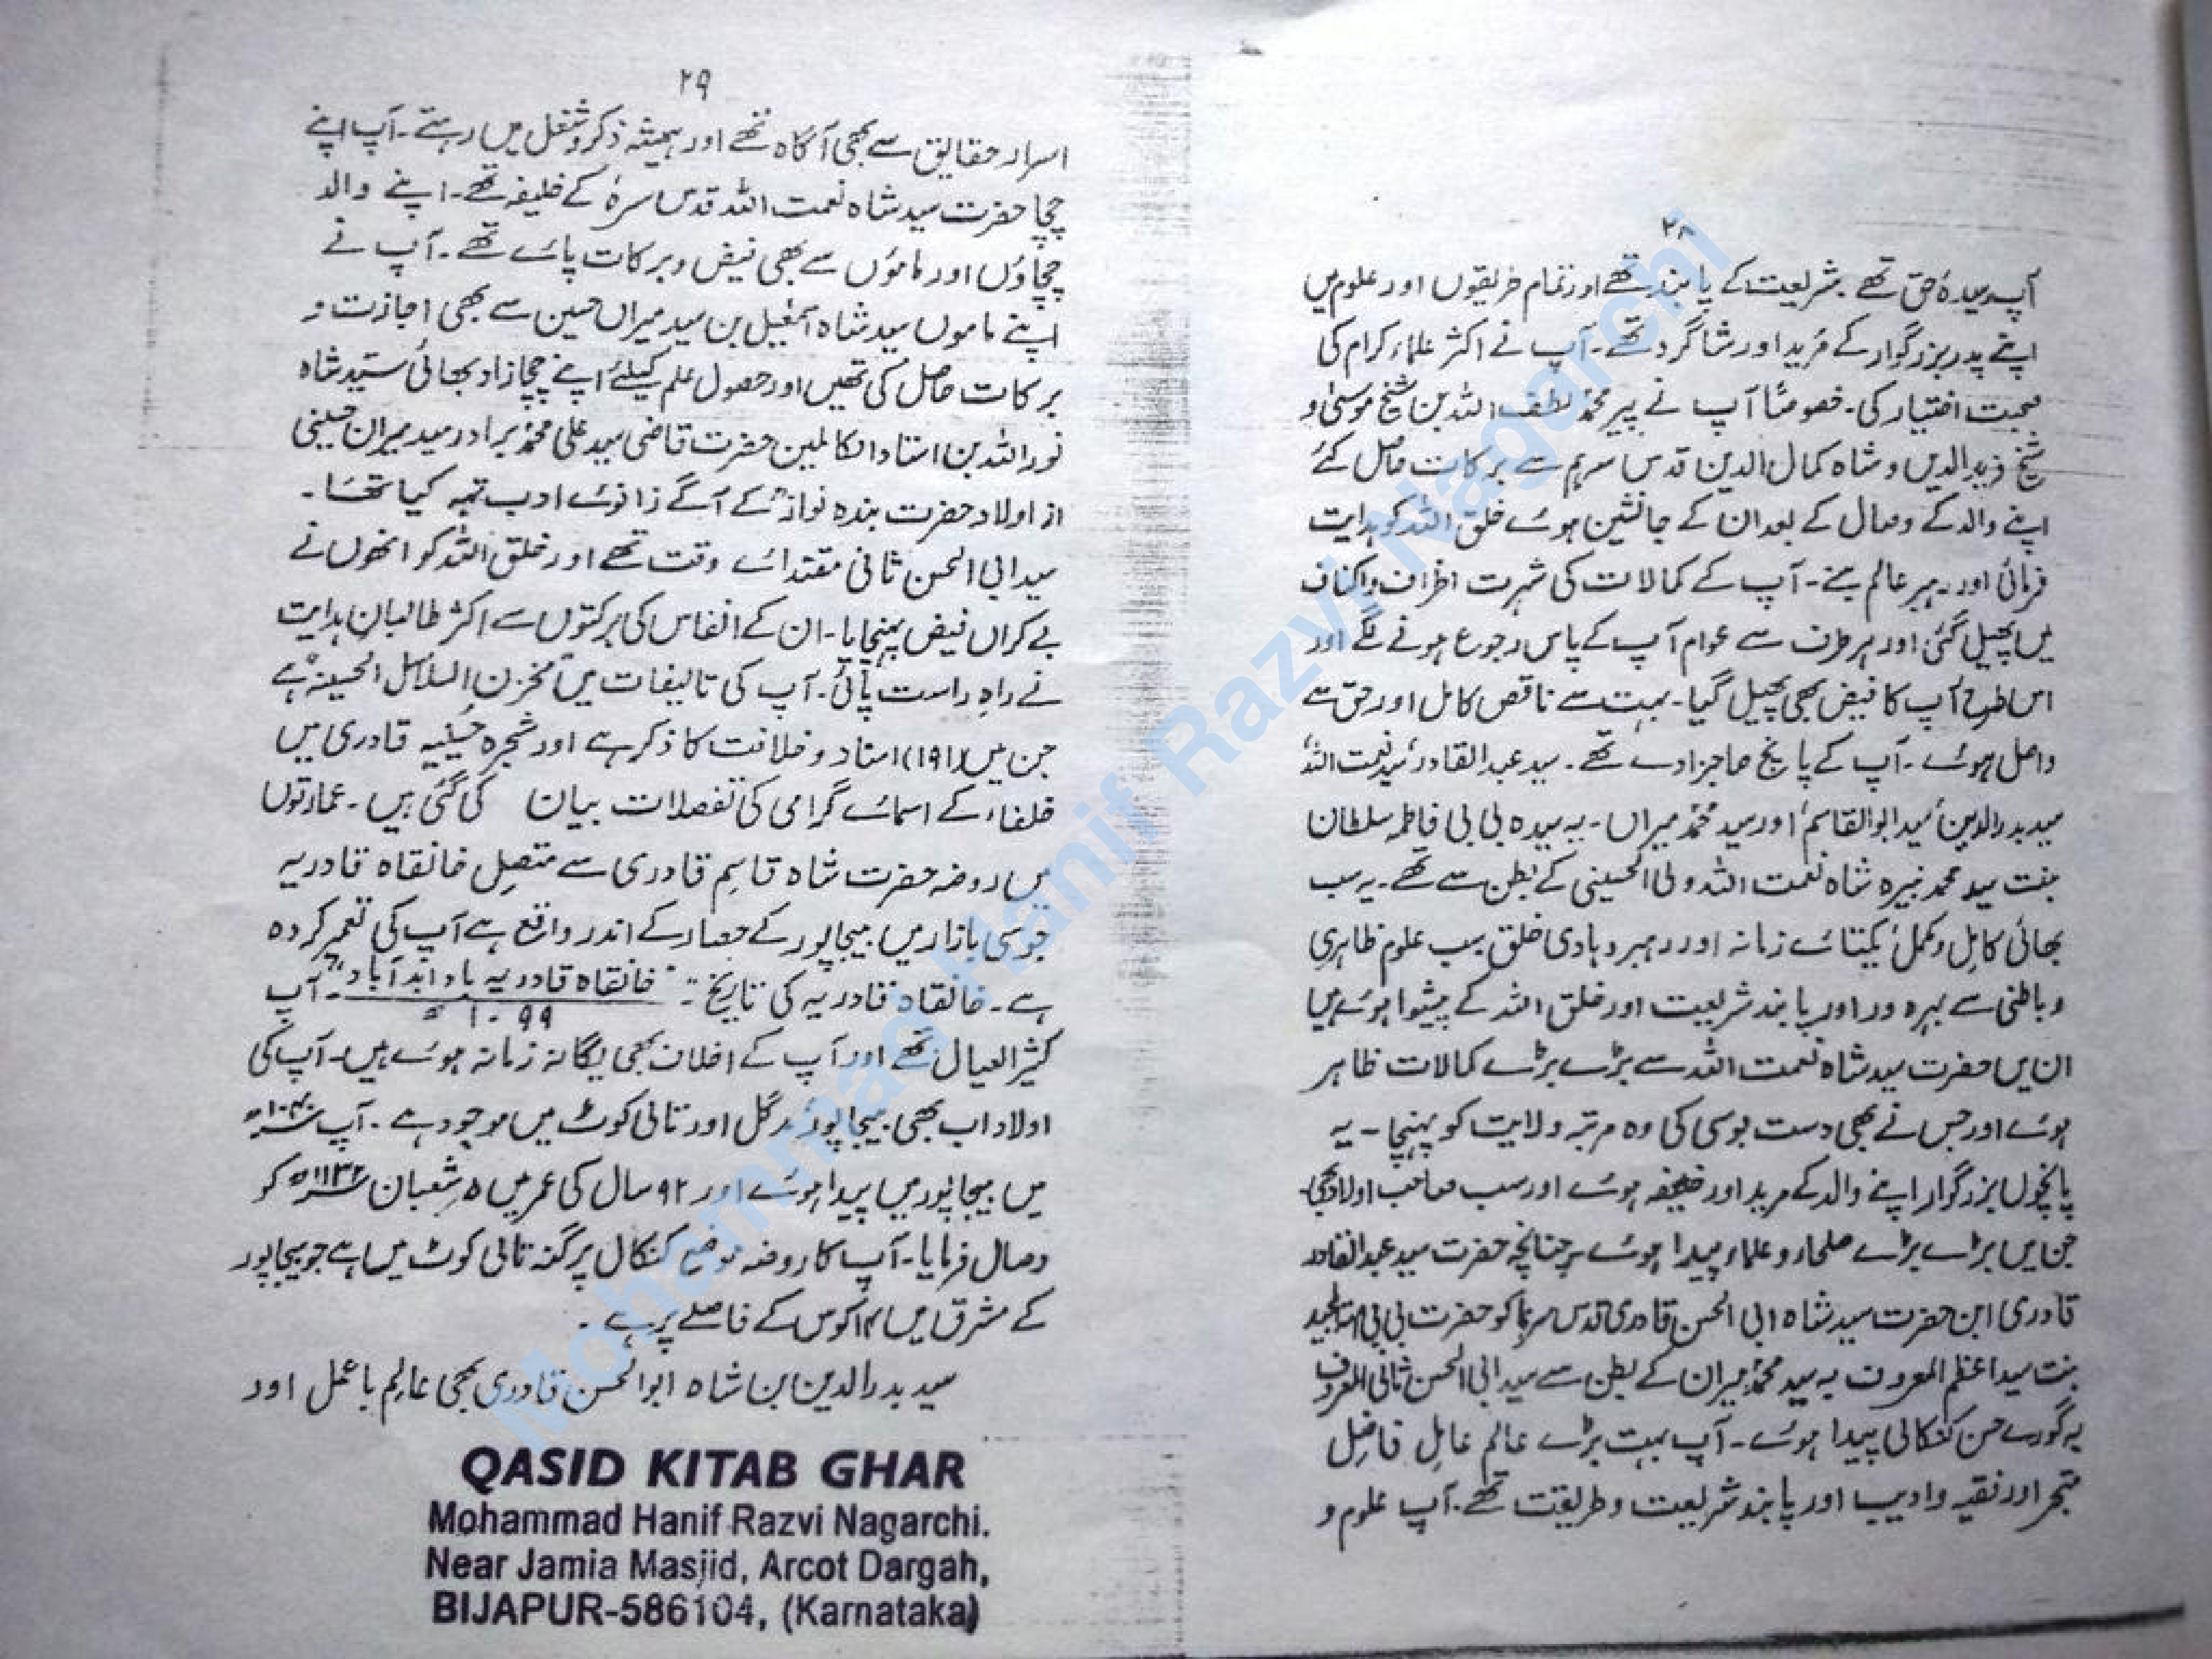 ۲۸
آپ سیدہ حق تھے۔ شریعت کے پابند تھے اور تمام طریقوں اور علوم میں
اپنے پدر بزرگوار کے مرید اور شاگرد تھے۔ آپ نے اکثر علماء کرام کی
صحبت اختیار کی۔ خصوصاً آپ نے پیر محمد لطف اللہ بن شیخ موسیٰ و
شیخ فرید الدین و شاہ کمال الدین قدس سرہم سے برکات حاصل کئے
اپنے والد کے وصال کے بعد ان کے جانشین ہوئے خلق اللہ کو ہدایت
فرمائی اور رہبر عالم بنے۔ آپ کے کمالات کی شہرت اطراف و اکناف
میں پھیل گئی اور ہر طرف سے عوام آپ کے پاس رجوع ہونے لگے اور
اس طرح آپ کا فیض بھی پھیل گیا۔ بہت سے ناقص کامل اور حق سے
واصل ہوئے۔ آپ کے پانچ صاحبزادے تھے۔ سید عبدالقادر، سید نعمت اللہ،
سید بدرالدین، سید ابوالقاسم، اور سید محمد میراں۔ یہ سیدہ بی بی فاطمہ سلطان
بنت سید محمد نبیرہ شاہ نعمت اللہ ولی الحسینی کے بطن سے تھے۔ یہ سب
بھائی کامل و مکمل، یکتائے زمانہ اور رہبر و ہادی خلق سب علوم ظاہری
و باطنی سے بہرہ ور اور پابند شریعت اور خلق اللہ کے پیشوا ہوئے ہیں
ان میں حضرت سید شاہ نعمت اللہ سے بڑے بڑے کمالات ظاہر
ہوئے اور جس نے بھی دست بوسی کی وہ مرتبہ ولایت کو پہنچا۔ یہ
پانچوں بزرگوار اپنے والد کے مرید اور خلیفہ ہوئے اور سب صاحب اولاد بھی۔
جن میں بڑے بڑے صلحاء و علماء پیدا ہوئے چنانچہ حضرت سید عبدالقادر
قادری ابن حضرت سید شاہ ابی الحسن قادری قدس سرہما کو حضرت بی بی
بنت سید اعظم المعروف بہ سید محمد میران کے بطن سے سید ابی الحسن ثانی المعروف
بہ گورے حسن کنکالی پیدا ہوئے۔ آپ بہت بڑے عالم عامل فاضل
متبحر اور فقیہ و ادیب اور پابند شریعت و طریقت تھے۔ آپ علوم و
۲۹
اسرار حقایق سے بھی آگاہ تھے اور ہمیشہ ذکر و شغل میں رہتے۔ آپ اپنے
چچا حضرت سید شاہ نعمت اللہ قدس سرہٗ کے خلیفہ تھے۔ اپنے والد
چچاؤں اور ماموں سے بھی فیض و برکات پائے تھے۔ آپ نے
اپنے ماموں سید شاہ اسمٰعیل بن سید میراں حسین سے بھی اجازت و
برکات حاصل کی تھیں اور حصول علم کیلئے اپنے چچازاد بھائی سید شاہ
نوراللہ بن استاد الکاملین حضرت قاضی سید علی محمد برادر سید میران حسینی
از اولاد حضرت بندہ نوازؒ کے آگے زانوئے ادب تہہ کیا تھا۔
سید ابی الحسن ثانی مقتدائے وقت تھے اور خلق اللہ کو انھوں نے
بے کراں فیض پہنچایا۔ ان کے انفاس کی برکتوں سے اکثر طالبان ہدایت
نے راہِ راست پائی۔ آپ کی تالیفات میں "مخزن السلاسل الحسینہ" ہے
جن میں (۱۹۱) اسناد و خلافت کا ذکر ہے اور شجرہ حسینیہ قادری میں
خلفاء کے اسمائے گرامی کی تفصلات بیان کی گئی ہیں۔ عمارتوں
میں روضہ حضرت شاہ قاسم قادری سے متصل خانقاہ قادریہ
جوسی بازار میں بیجاپور کے حصار کے اندر واقع ہے آپ کی تعمیر کردہ
ہے۔ خانقاہ قادریہ کی تاریخ :- "خانقاہ قادریہ باد ابد آباد" - آپ
۱۰۹۹ھ
کثیر العیال تھے اور آپ کے اخلاف بھی یگانہ زمانہ ہوئے ہیں۔ آپ کی
اولاد اب بھی بیجاپور، مدگل اور تالی کوٹ میں موجود ہے۔ آپ ۱۰۴۰ھ
میں بیجاپور میں پیدا ہوئے اور ۹۲ سال کی عمر میں ۵ شعبان ۱۱۳۲ھ کو
وصال فرمایا۔ آپ کا روضہ موضع کنکال پرگنہ تالی کوٹ میں ہے جو بیجاپور
کے مشرق میں ۱۴ کوس کے فاصلے پر ہے۔
سید بدرالدین بن شاہ ابوالحسن قادری بھی عالم باعمل اور
QASID KITAB GHAR
Mohammad Hanif Razvi Nagarchi.
Near Jamia Masjid, Arcot Dargah,
BIJAPUR-586104, (Karnataka)
Mohammad Hanif Razvi Nagarchi